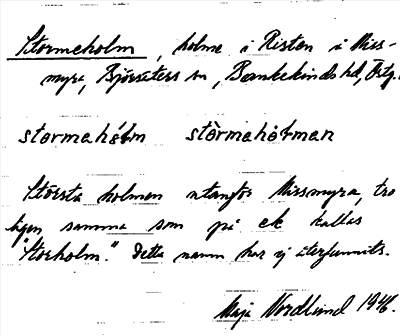 Stormeholm, holme i Risten i Miss-
myra, Björsäters sn, Bankekinds hd, Östg.
stormahòlm stòrmahòlman
Största holmen utanför Missmyra, tro
ligen samma som på ek kallas
"Storholm." Detta namn har ej återfunnits.
Maja Nordlund 1946.